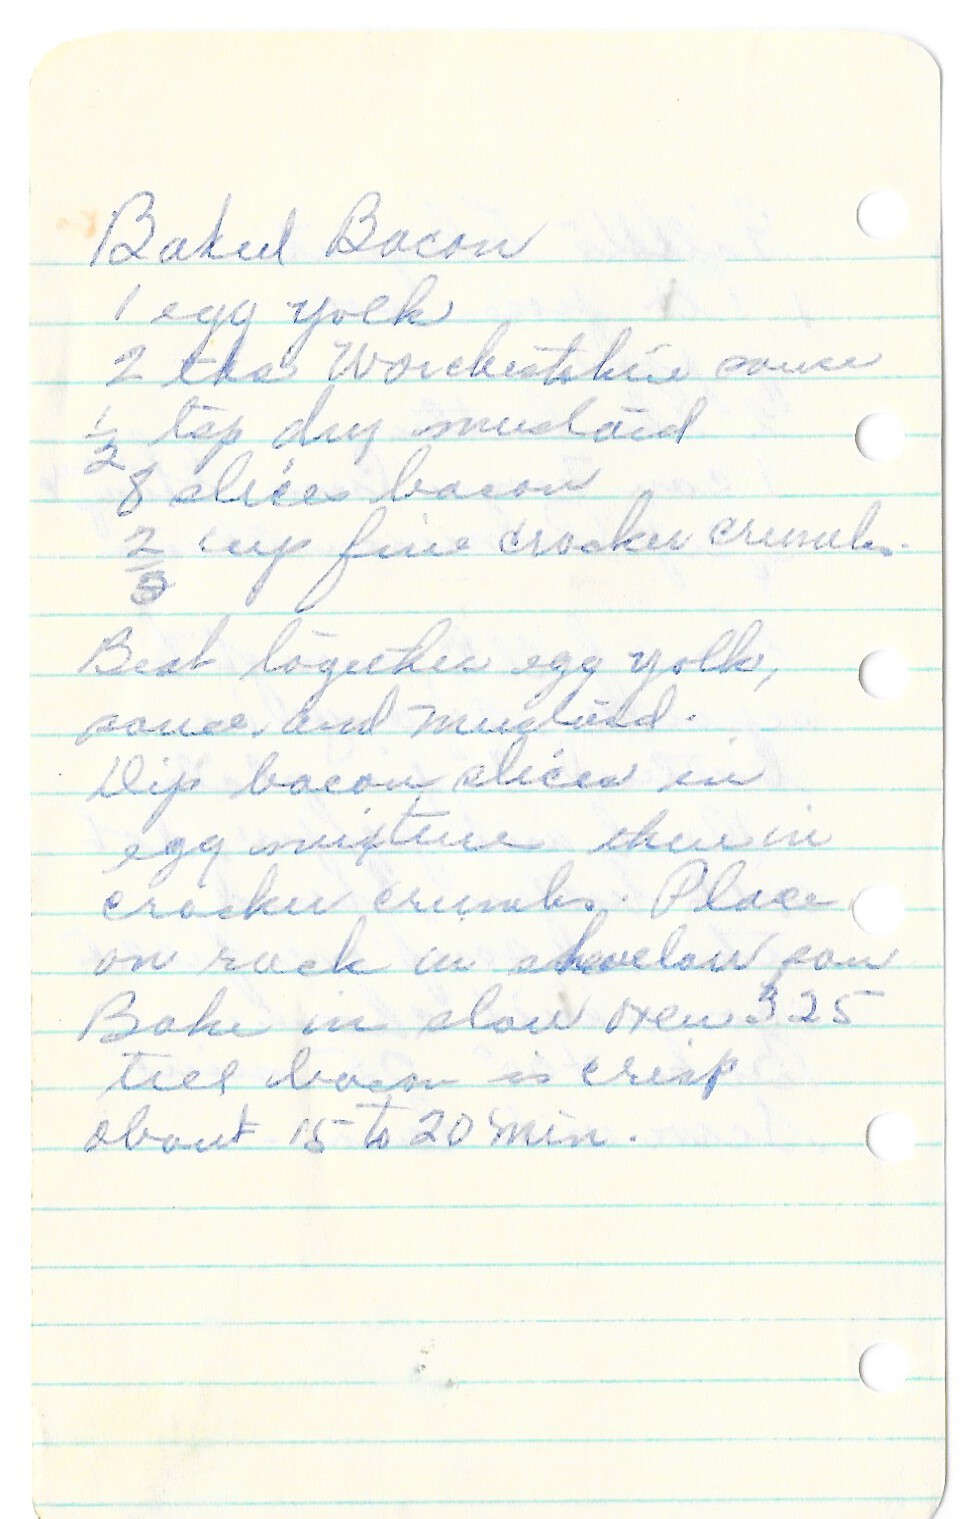 Baked Bacon
1 egg yolk
2 tbs Worchestshire sauce
1/2 tsp dry mustard
8 slices bacon
2/3 cup fine cracker crumbs.
Beat together egg yolk,
sauce, and mustard.
Dip bacon slices in
egg mixture then in
cracker crumbs. Place
on rack in shawlow pan
Bake in slow oven 325
till bacon is crisp
about 15 to 20 min.